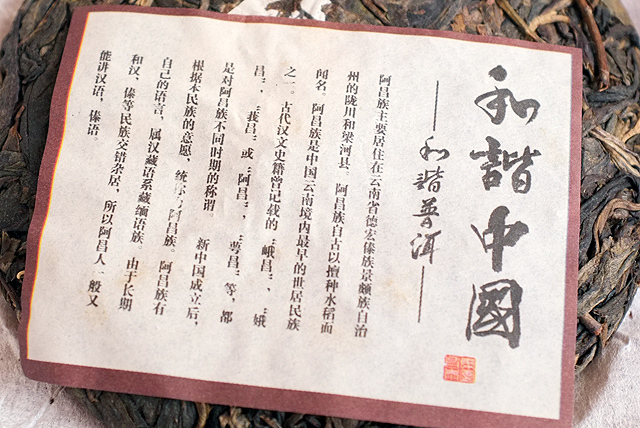 和諧中國
——和諧普洱——
阿昌族主要居住在云南省德宏傣族景颇族自治
州的陇川和梁河县、阿昌族自古以擅种水稻而
闻名。阿昌族是中国云南境内最早的世居民族
之一。古代汉文史籍曾记载的“峨昌”、“娥
昌”，“莪昌”或“阿昌”、“萼昌”等，都
是对阿昌族不同时期的称谓。 新中国成立后，
根据本民族的意愿，统称为阿昌族。阿昌族有
自己的语言，属汉藏语系藏缅语族。由于长期
和汉、傣等民族交错杂居，所以阿昌人一般又
能讲汉语，傣语